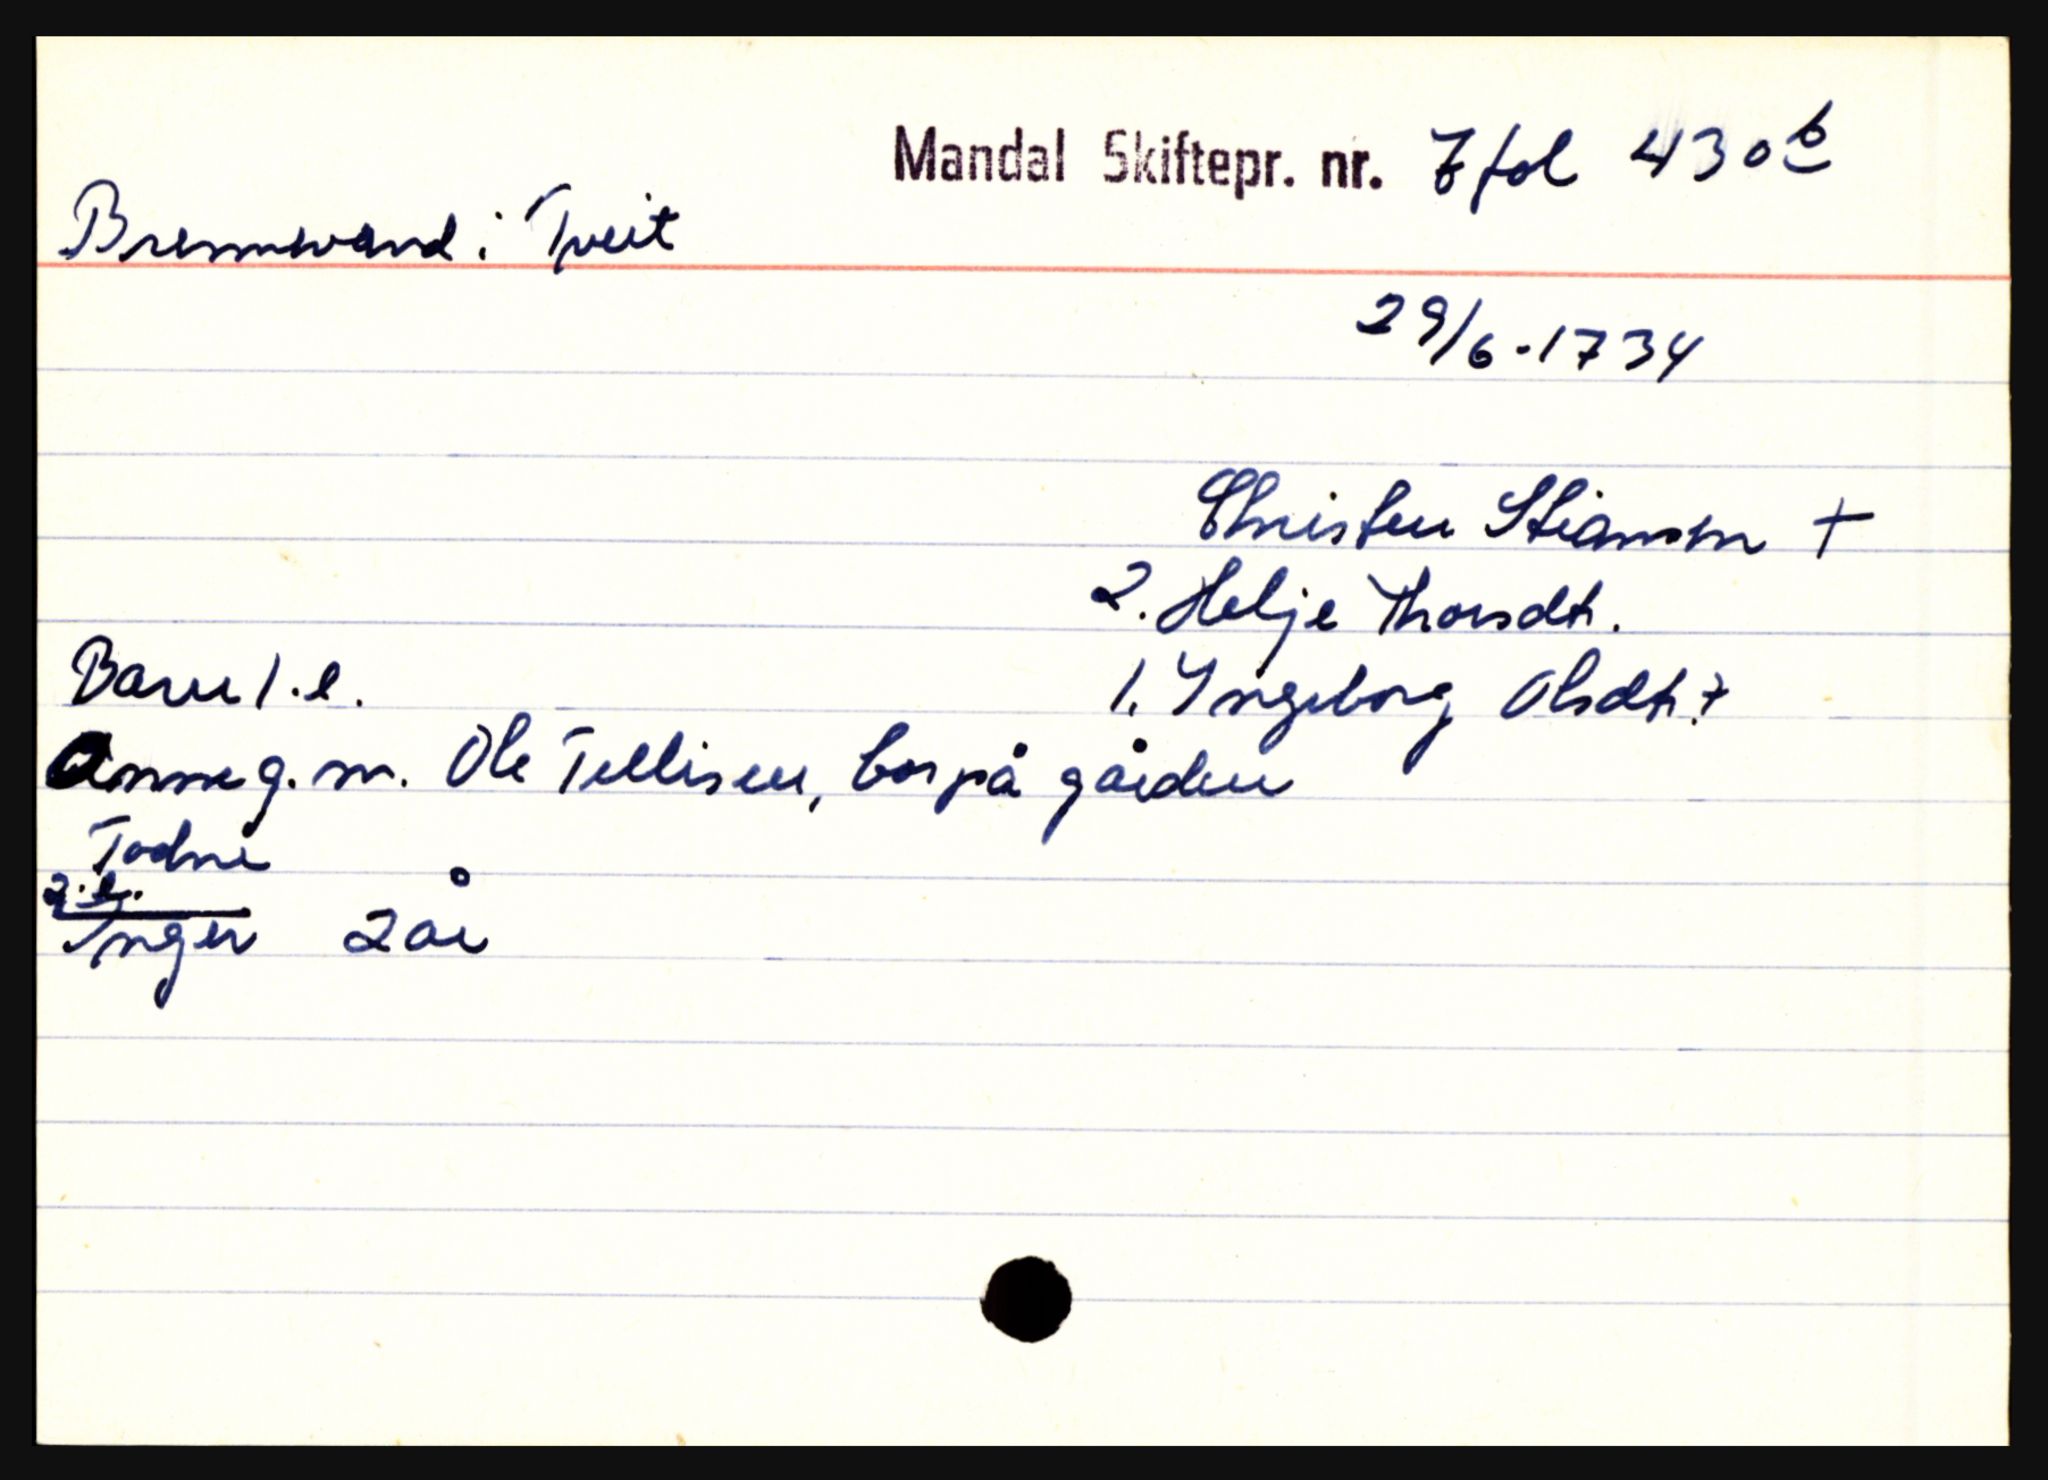 Mandal Skiftepr. nr. 7 fol 430b
Brennevand i Tveit
29/6-1734
Christen Stiansen +
2. Helje Thorsdtr.
Barn 1. e.
1. Yngeborg Olsdtr. +
Anne g. m. Ole Tellisen, bor på gården
Todne
2. e.
Ynger 2 år